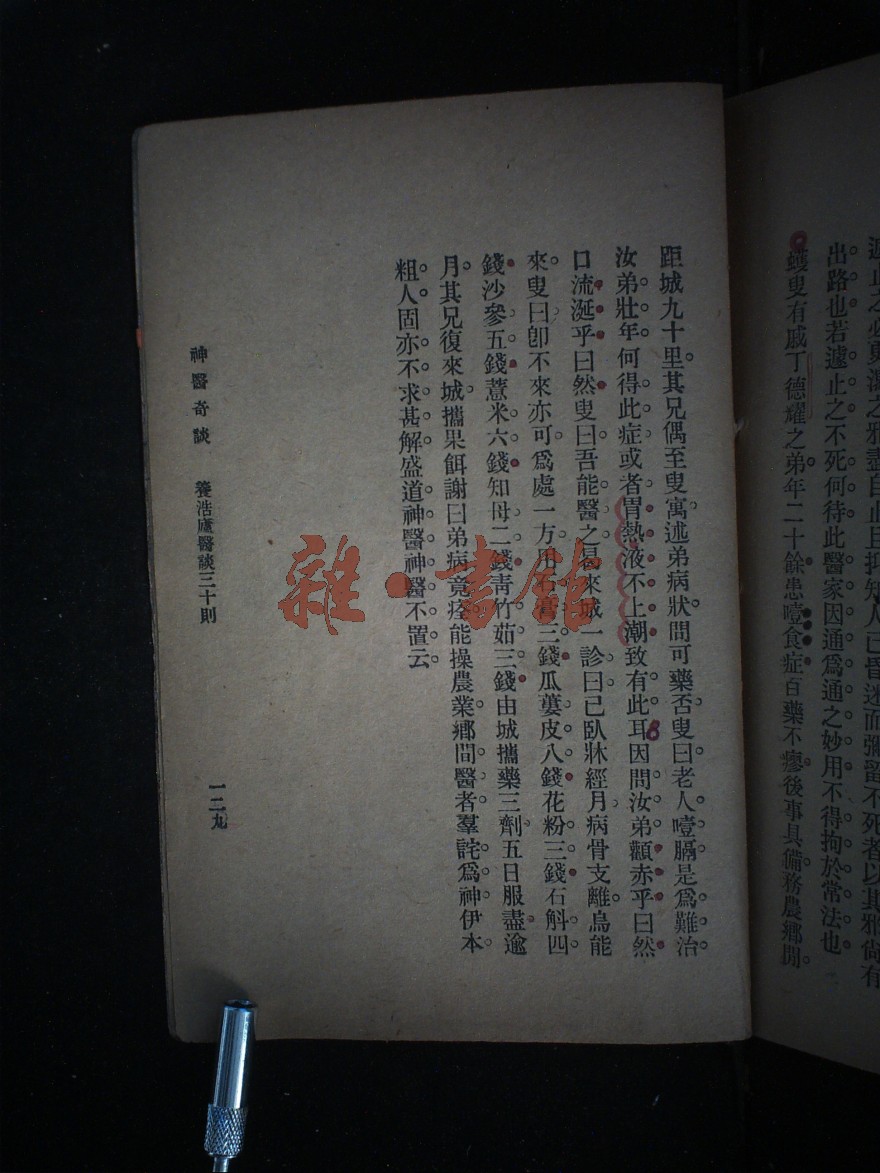 遽止之必更潰之邪盡自止且抑知人已昏迷而彌留不死者以其邪尙有
出路也若遽止之不死何待此醫家因通爲通之妙用不得拘於常法也
蠖叟有戚丁德耀之弟年二十餘患噎食症百藥不瘳後事具備務農鄉閒
距城九十里其兄偶至叟寓述弟病狀問可藥否叟曰老人噎膈是爲難治
汝弟壯年何得此症或者胃熱液不上潮致有此耳因問汝弟顴赤乎曰然
口流涎乎曰然叟曰吾能醫之曷來城一診曰已臥牀經月病骨支離烏能
來叟曰卽不來亦可爲處一方用石膏三錢瓜蔞皮八錢花粉三錢石斛四
錢沙參五錢薏米六錢知母二錢靑竹茹三錢由城攜藥三劑五日服盡逾
月其兄復來城攜果餌謝曰弟病竟痊能操農業鄉間醫者羣詫爲神伊本
粗人固亦不求甚解盛道神醫神醫不置云
神醫奇談 養浩廬醫談三十則 一二九
雜·書館